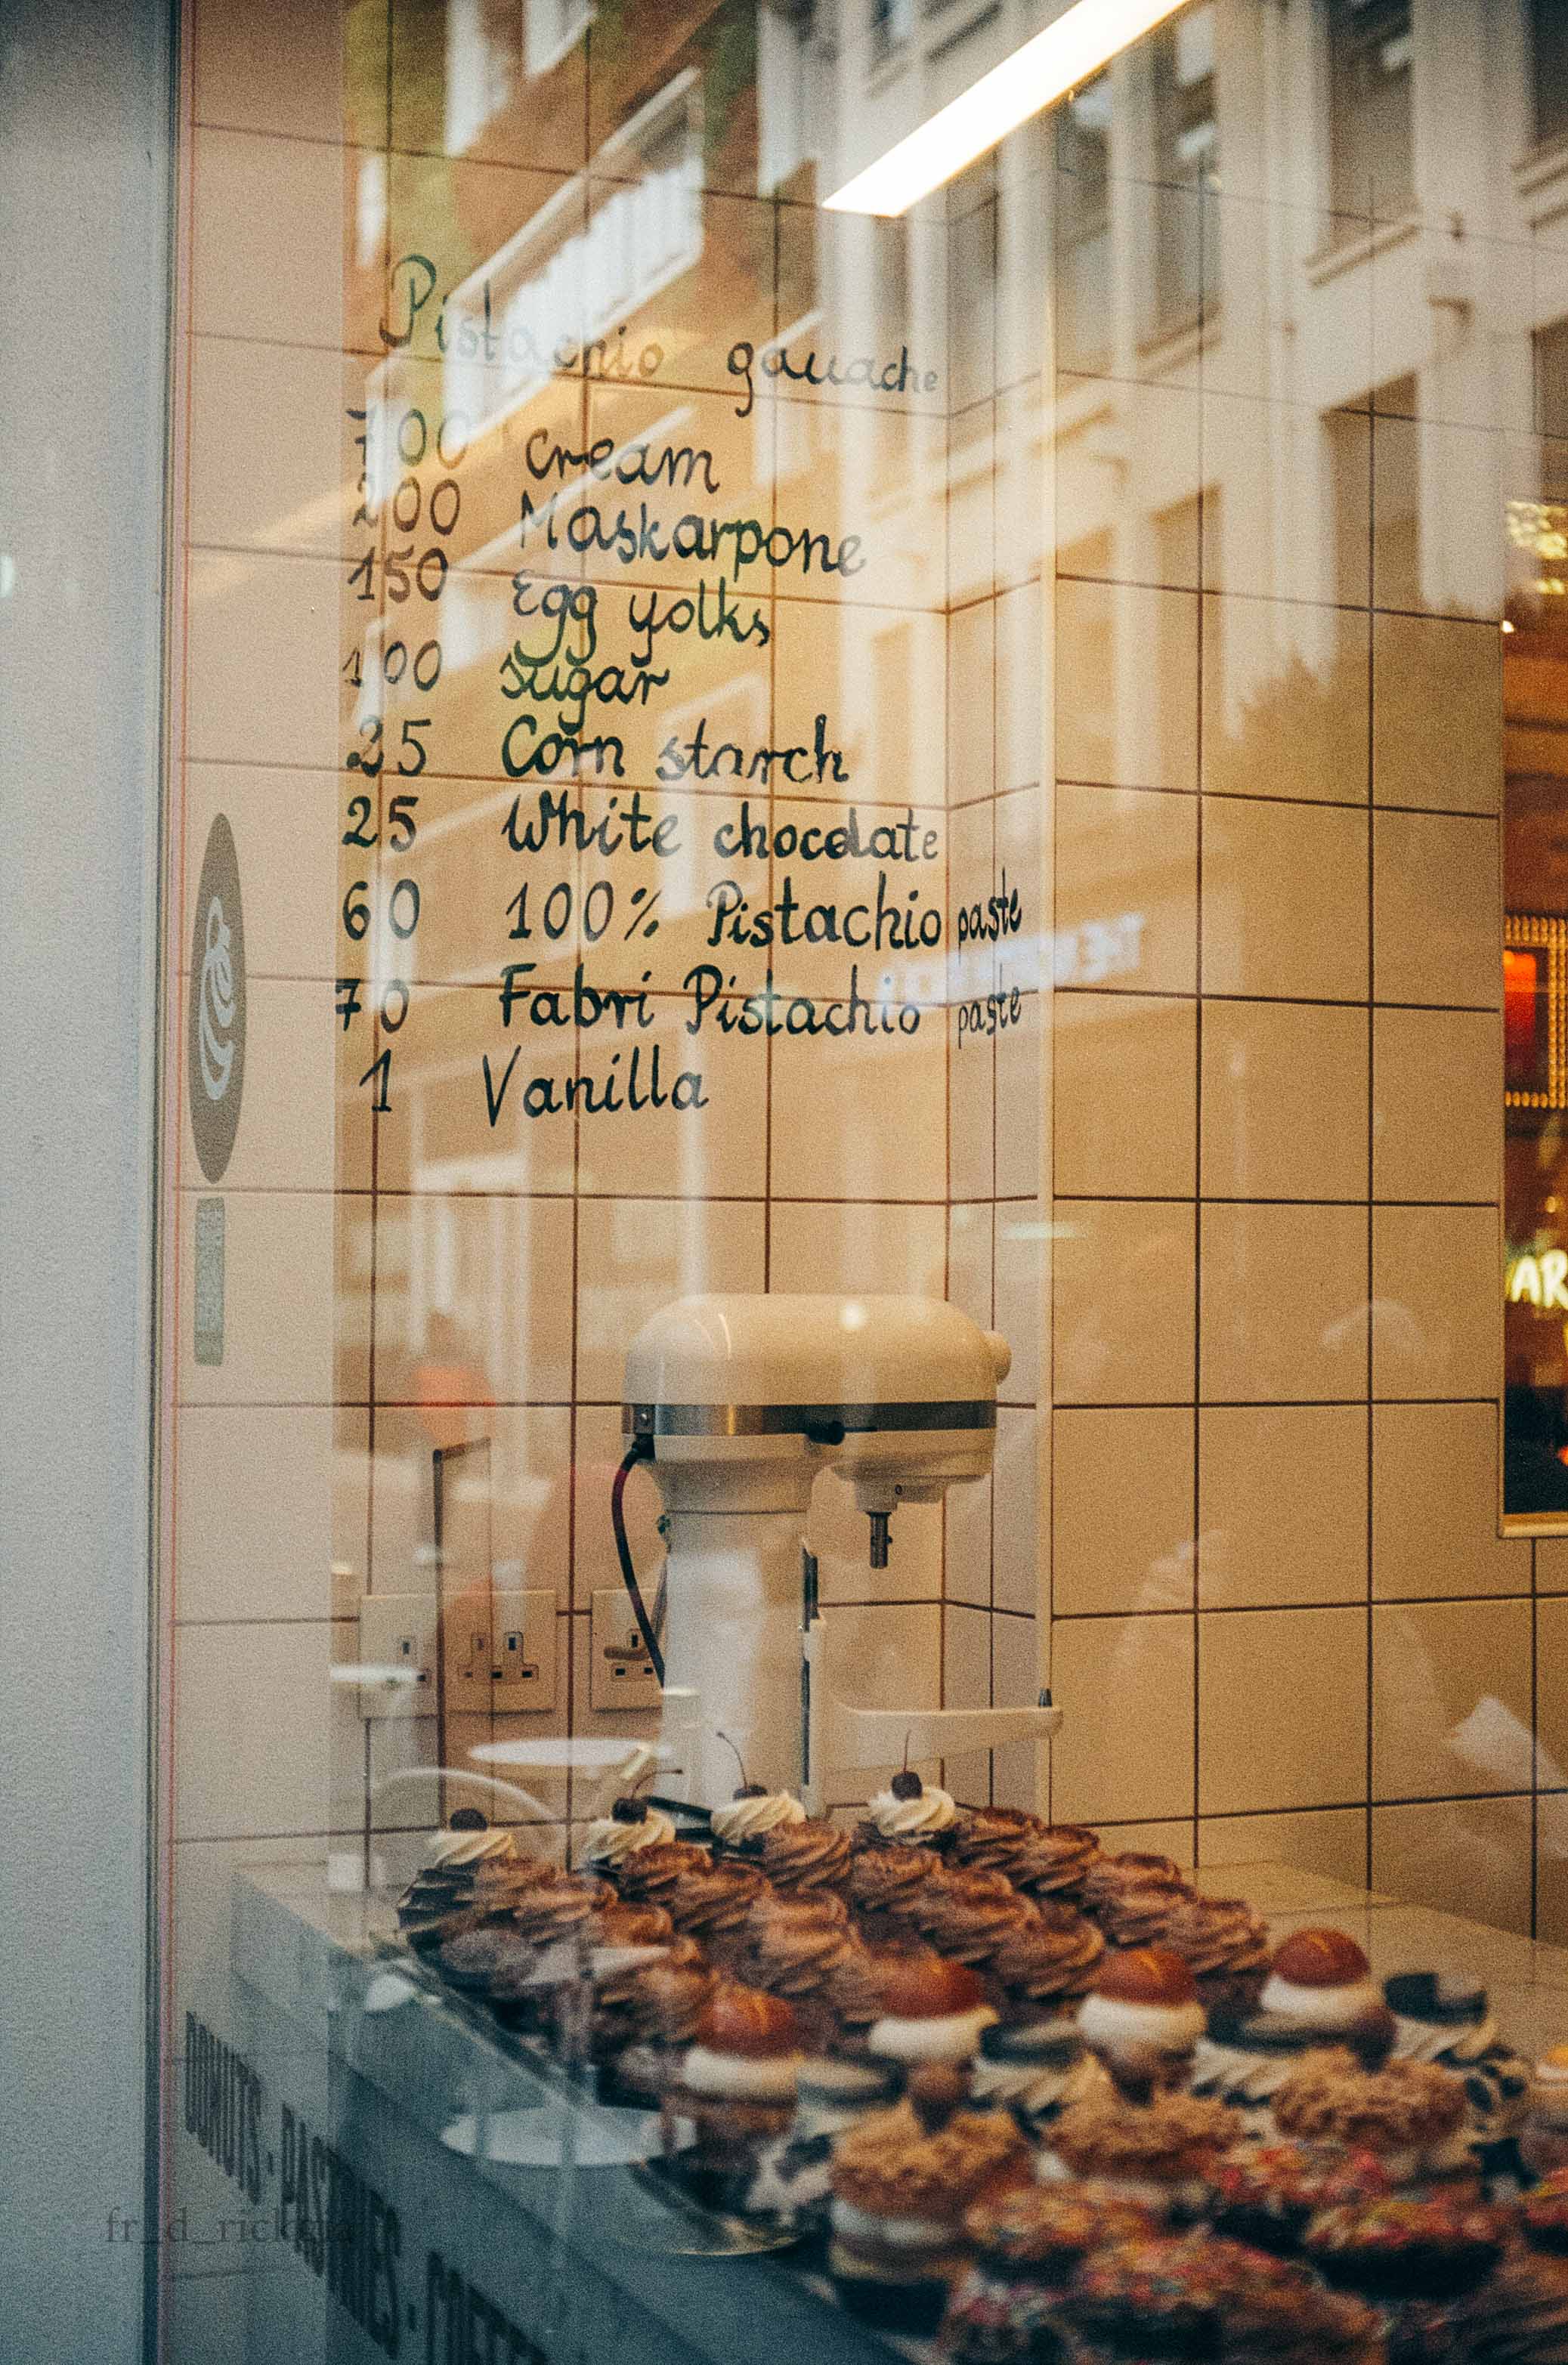 Pistachio gauache
700 cream
200 Maskarpone
150 Egg yolks
100 sugar
25 Corn starch
25 White chocolate
60 100% Pistachio paste
70 Fabri Pistachio paste
1 Vanilla
AR
DONUTS · PASTRIES · COFFEE